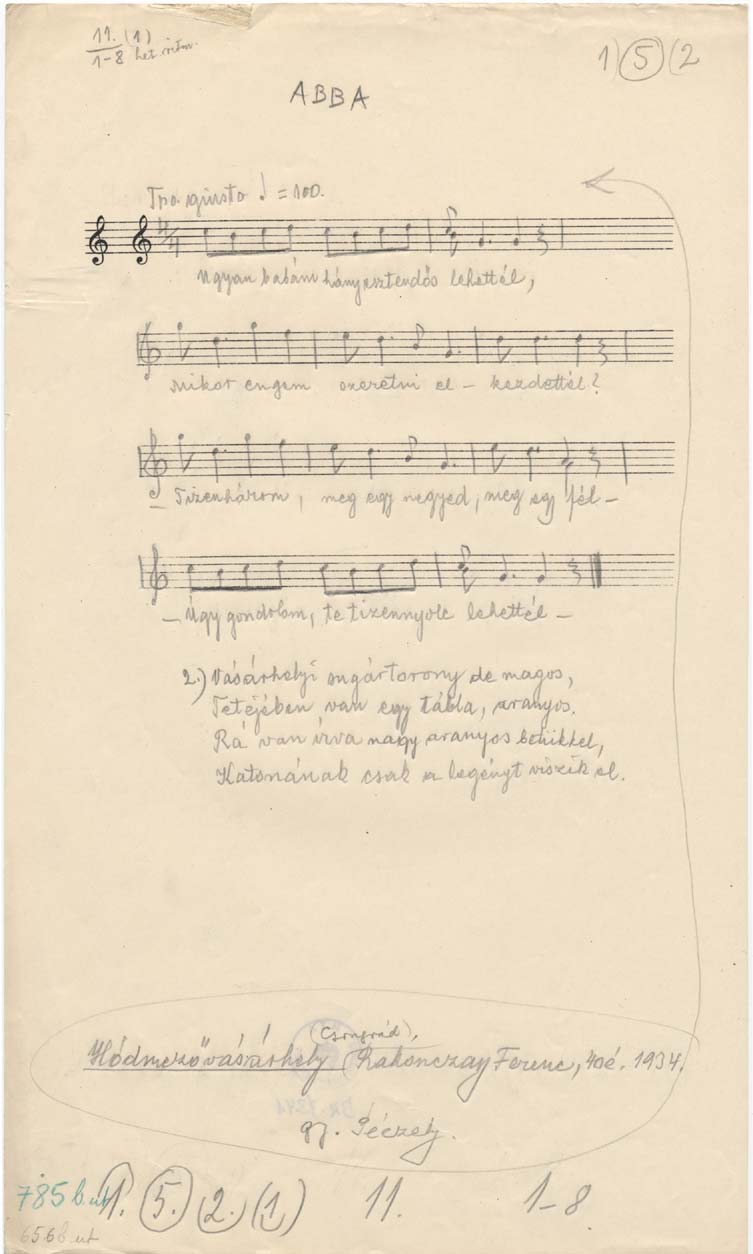 11. (1)
1-8 het. ritm.
1) (5) (2
ABBA
Tpo. giusto ♩ = 100.
Ugyan babám hány esztendős lehettél,
Mikor engem szeretni el - kezdettél?
- Tizenhárom, meg egy negyed, meg egy fél -
- Úgy gondolom, te tizennyolc lehettél -
2.) Vásárhelyi sugártorony de magos,
Tetejében van egy tábla, aranyos.
Rá van írva nagy aranyos betükkel,
Katonának csak a legényt viszik el.
(Csongrád),
Hódmezővásárhely (Rakonczay Ferenc, 40é. 1934.
gy. Péczely.
785 b. ut
1. (5.) 2. (1) 11. 1-8.
656 b. ut